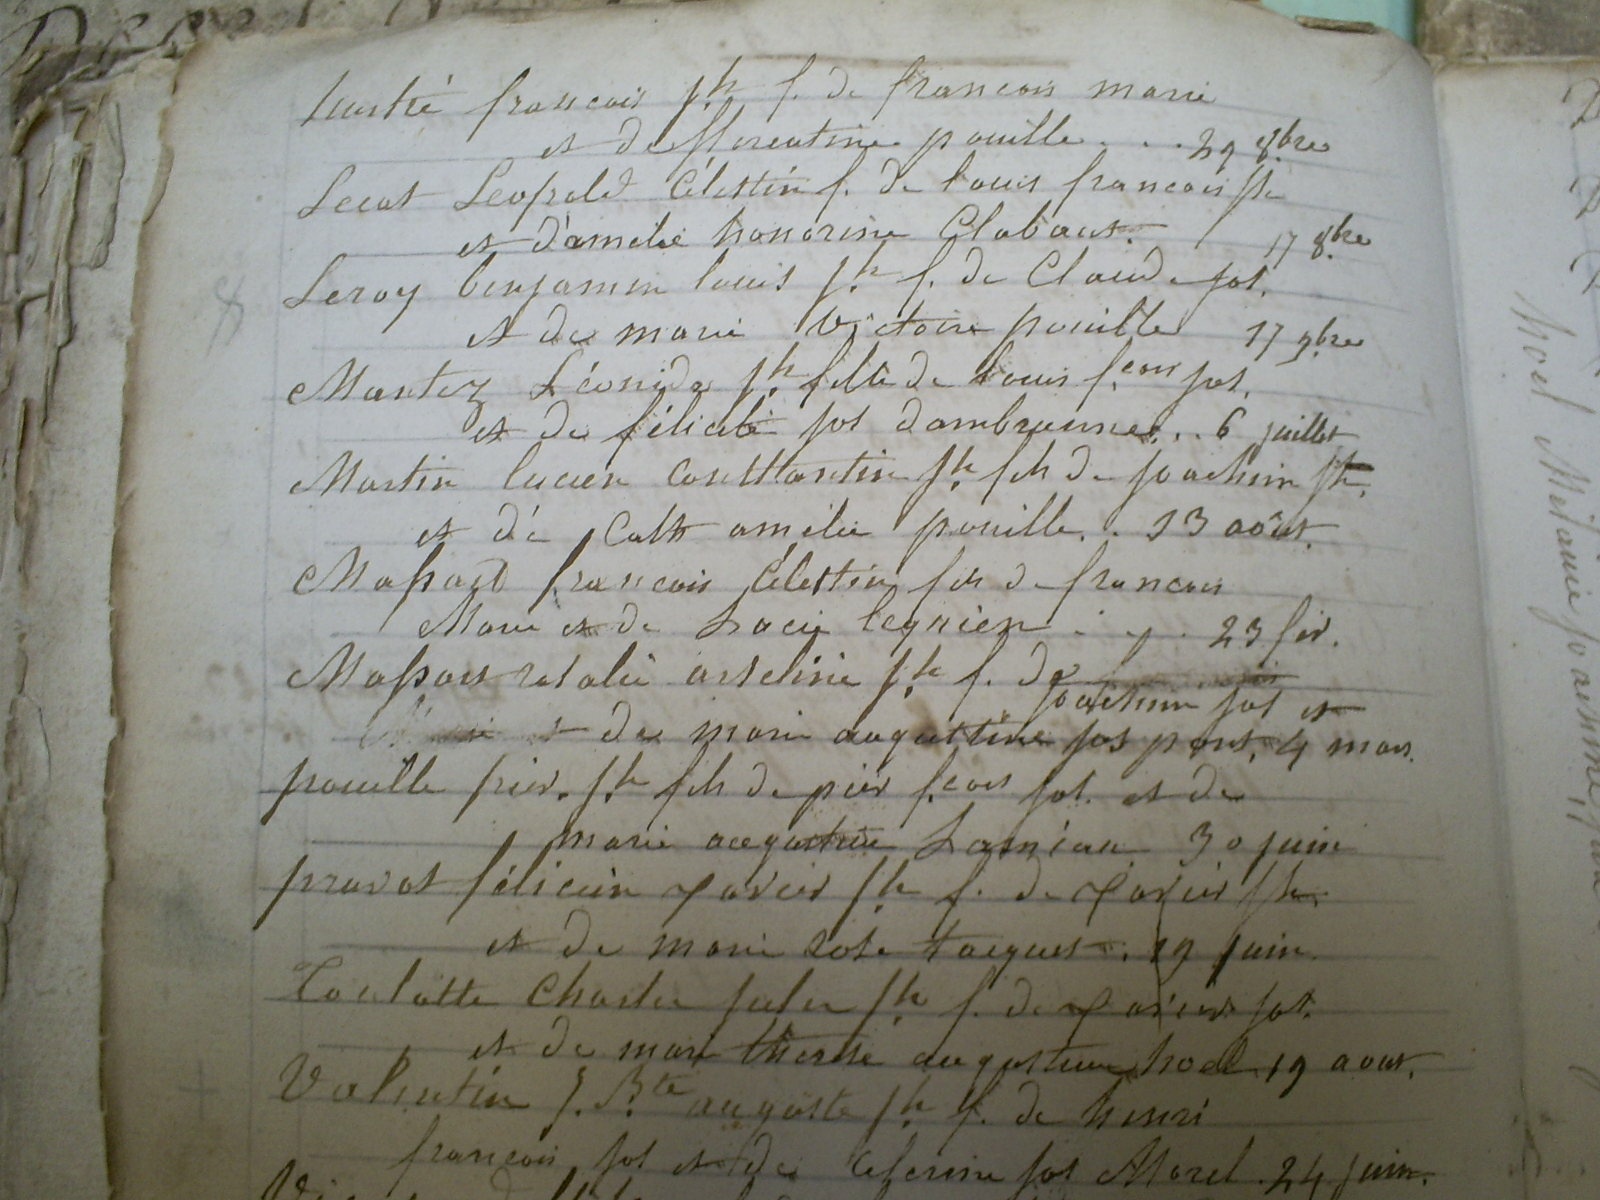 francois jh f. de francois marie
et de florentine pouille . . . 29 8bre
Lecat Leopold Célestin f. de louis francois jh
et d'amelie honorine Clabaut. 17 8bre
Leroy benjamin louis jh f. de Claude jos.
et de marie victoire pouille 17 9bre
Mantez Léonide jh fille de louis f.cois jos.
et de félicité jos dambrunne . . 6 juillet
Martin lucien Constantin jh fils de joachim jh.
et de Cath amélie pouille . . 13 août.
Massart francois Célestin fils de francois
Marie et de Lucie legnien . . . 23 fév.
Massart natalie asteline jh f. de
joachim jos et
et de marie augustine jos pont, 4 mars.
pouille pier. jh fils de pier f.cois jos. et de
marie augustine Laniau 30 juin
pravot félicien xavier jh f. de xavier jh.
et de marie rose tacquet . 19 juin.
Toulotte Charles jules jh f. de xavier jos.
et de marie therese augustine hoel 19 aout.
Valentin J. Bte auguste jh f. de henri
francois jos et de Celerine jos Morel. 24 juin.
hoel Mélanie joachime